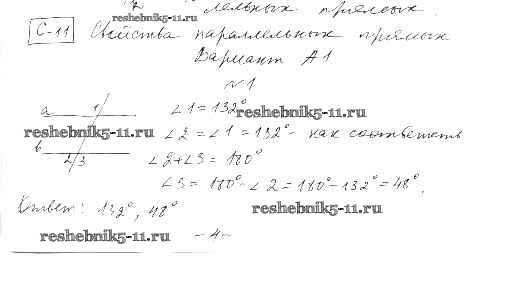 лельных прямых.
reshebnik5-11.ru
С-11 Свойства параллельных прямых
Вариант А1
№1
a 1 ∠1 = 132° reshebnik5-11.ru
reshebnik5-11.ru ∠2 = ∠1 = 132° - как соответств
b
2 3 ∠2+∠3 = 180°
∠3 = 180° - ∠2 = 180° - 132° = 48°.
Ответ: 132°, 48° reshebnik5-11.ru
reshebnik5-11.ru -4-